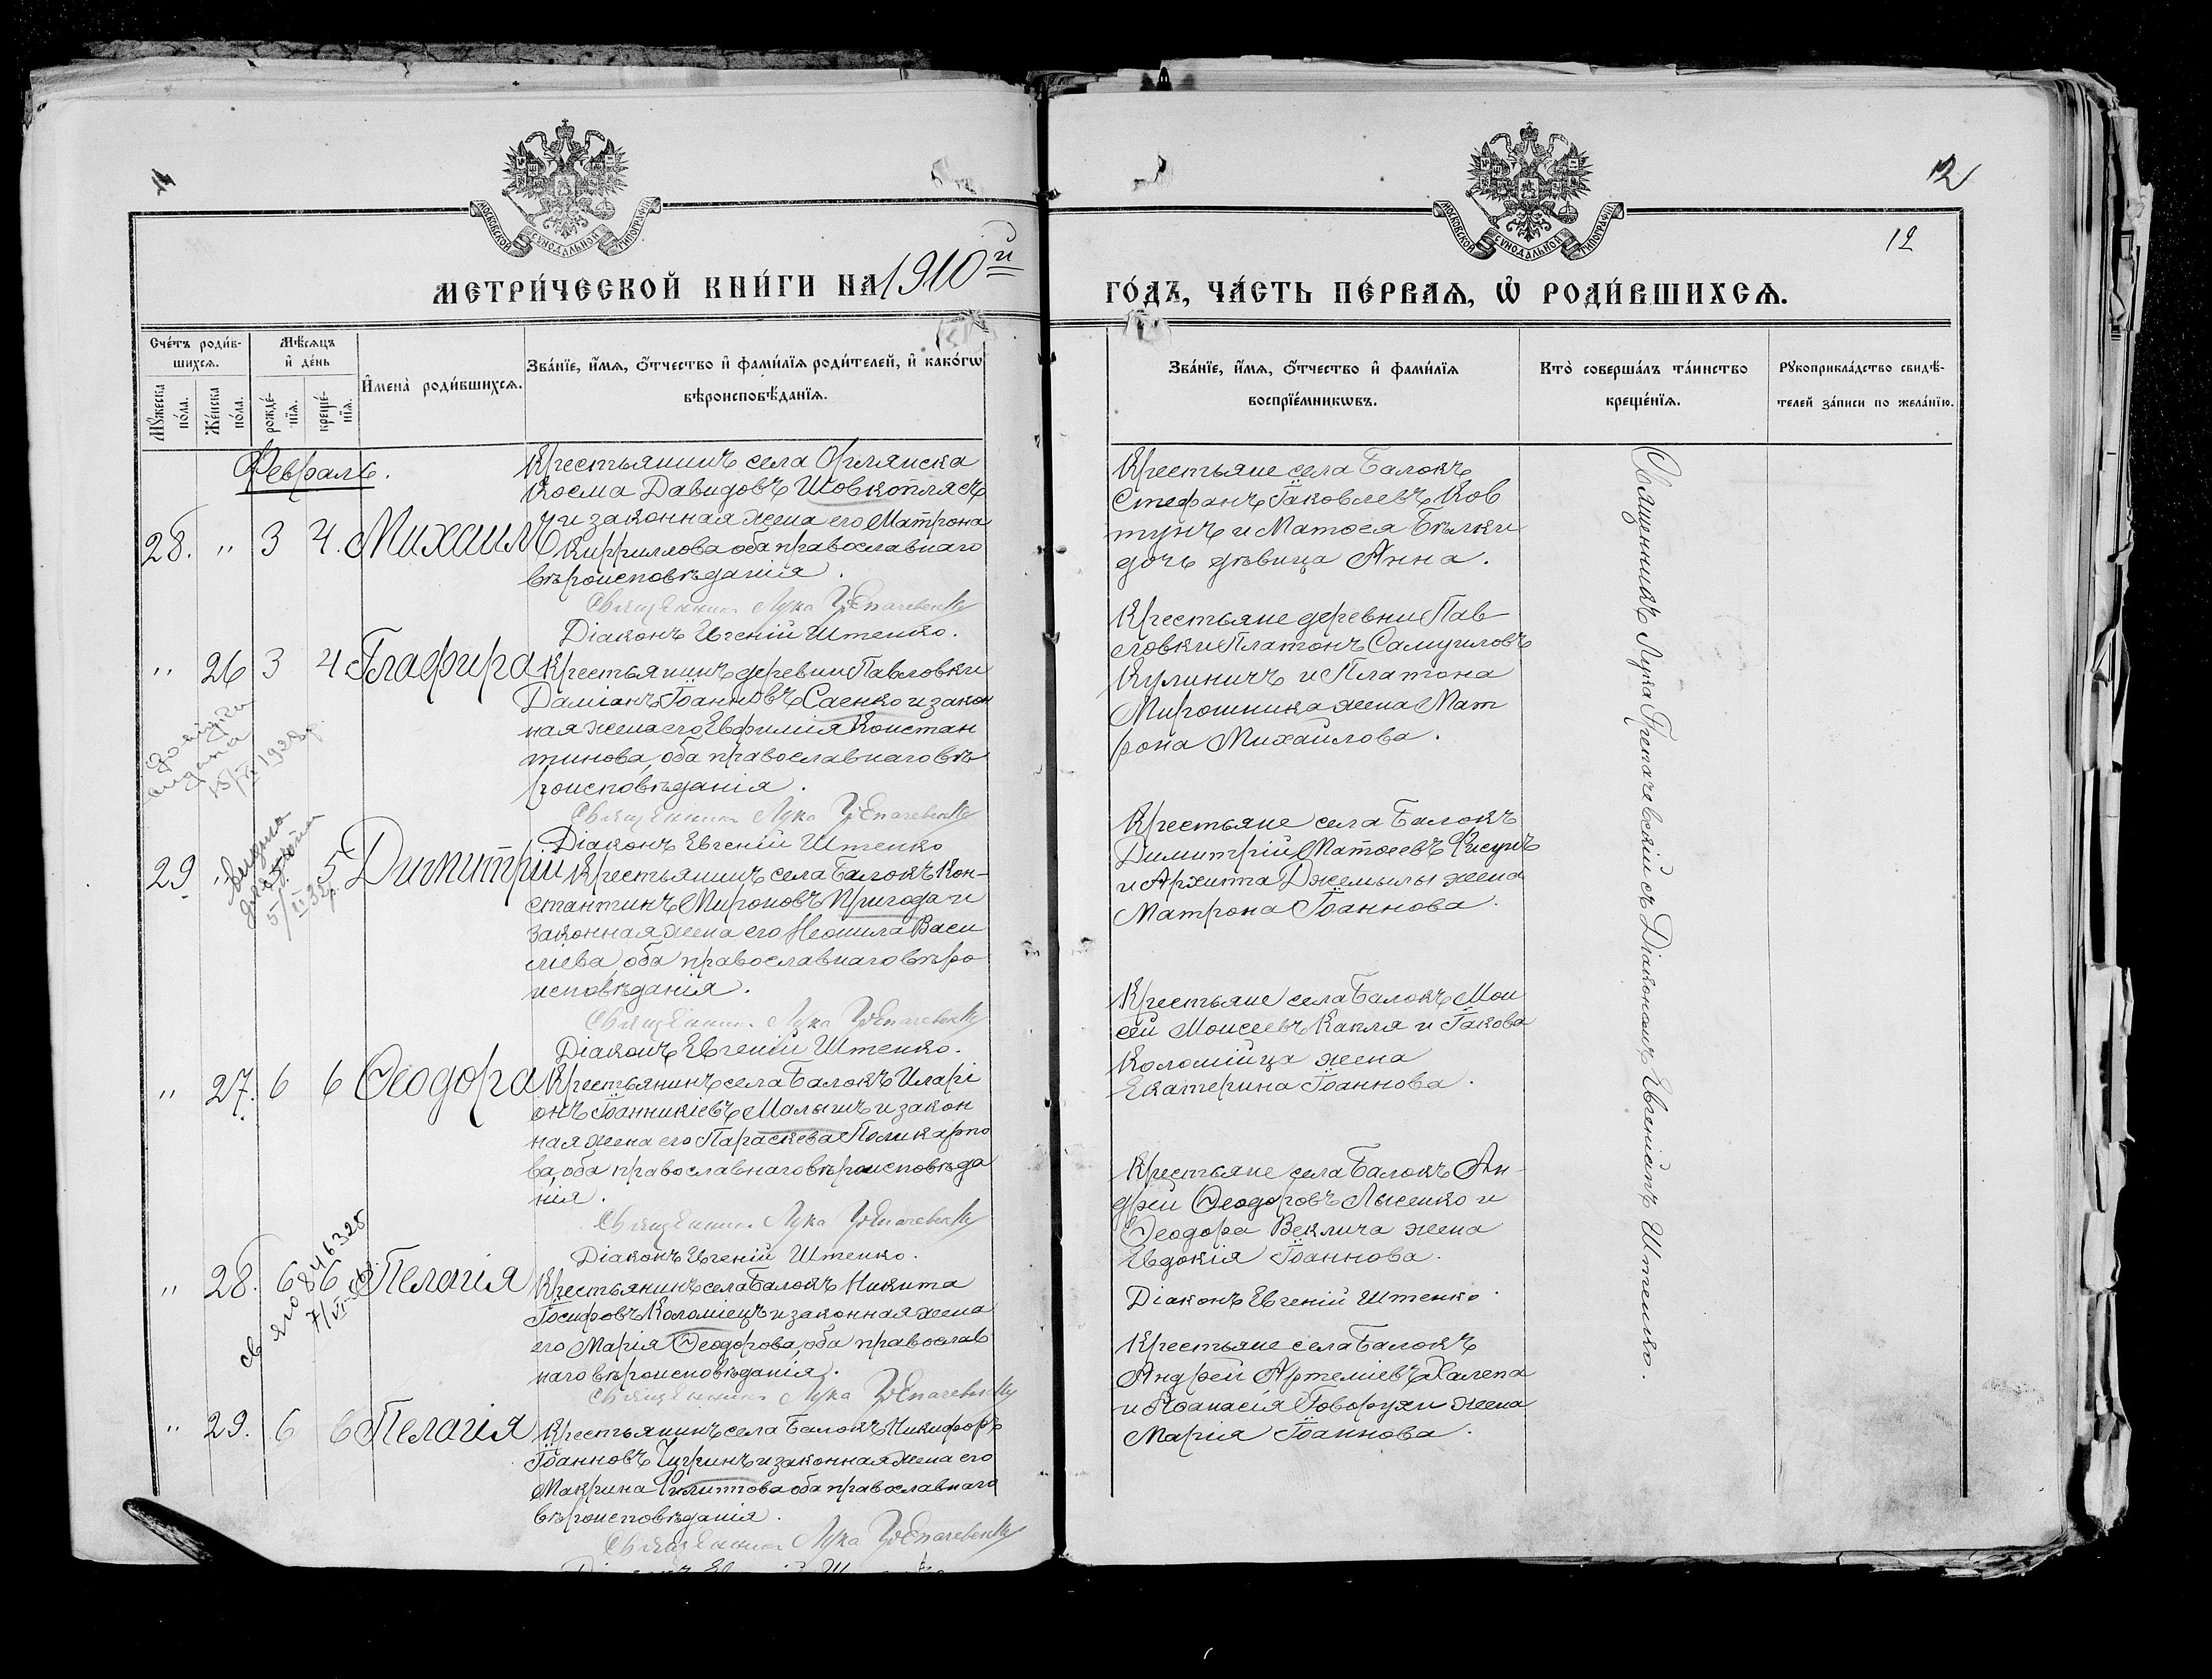 12
12
МОСКОВСКОЙ СѴНОДАЛЬНОЙ ТИПОГРАФІИ
МОСКОВСКОЙ СѴНОДАЛЬНОЙ ТИПОГРАФІИ
МЕТРИ́ЧЕСКОЙ КНИ́ГИ НА 1910й
ГО́ДЪ, ЧА́СТЬ ПЕ́РВАѦ, Ѡ҆ РОДИ́ВШИХСѦ.
Сче́тъ роди́в-
шихсѧ.
Мꙋ́жеска по́ла.
Же́нска по́ла.
Мѣ́сѧцъ
и҆ де́нь
рожде́-
нїѧ.
креще́-
нїѧ.
И҆мена̀ роди́вшихсѧ.
Зва́нїе, и҆́мѧ, ѻ҆́тчество и҆ фами́лїѧ роди́телей, и҆ како́гѡ
вѣроисповѣ́данїѧ.
Зва́нїе, и҆́мѧ, ѻ҆́тчество и҆ фами́лїѧ
воспрїе́мникѡвъ.
Кто̀ соверша́лъ та́инство
креще́нїѧ.
Рꙋкоприкла́дство свидѣ́-
телей за́писи по жела́нїю.
Февраль.
28. " 3 4. Михаилъ
Крестьянинъ села Орлянска
Косма Давидовъ Шовкоплясъ
и законная жена его Матрона
Кириллова оба православнаго
вѣроисповѣданія.
Священникъ Лука
Діаконъ Евгеній Штенко.
Крестьяне села Балокъ
Стефанъ Іаковлевъ Ков
тунъ и Матѳея Бѣлки
дочь дѣвица Анна.
" 26 3 4 Глафира
Крестьянинъ деревни Павловки
Даміанъ Іоанновъ Саенко и закон
ная жена его Евфимія Констан
тинова, оба православнаго вѣ
роисповѣданія.
Священникъ Лука
Діаконъ Евгеній Штенко
Крестьяне деревни Пав
ловки Платонъ Самуиловъ
Кулиничъ и Платона
Мирошника жена Мат
рона Михайлова.
29 " 5 Димитрій
Крестьянинъ села Балокъ Кон-
стантинъ Мироновъ Пригода и
законная жена его Неонила Васи
лиева, оба православнаго вѣро
исповѣданія.
Священникъ Лука
Діаконъ Евгеній Штенко.
Крестьяне села Балокъ
Димитрій Матѳеевъ Фисунъ
и Архипа Джемылы жена
Матрона Іоаннова.
" 27. 6 6 Ѳеодора
Крестьянинъ села Балокъ Иларі
онъ Іоанникіевъ Малышъ и закон
ная жена его Параскева Поликарпо
ва, оба православнаго вѣроисповѣда
нія.
Священникъ Лука
Діаконъ Евгеній Штенко.
Крестьяне села Балокъ Мои
сей Моисеевъ Капля и Іакова
Коломійца жена
Екатерина Іоаннова.
" 28. 6 6 Пелагія
Крестьянинъ села Балокъ Никита
Іосифовъ Коломіецъ и законная жена
его Марія Ѳеодорова, оба православ
наго вѣроисповѣданія.
Священникъ Лука
Крестьяне села Балокъ Ан-
дрей Ѳеодоровъ Лысенко и
Ѳеодора Веклича жена
Евдокія Іоаннова.
Діаконъ Евгеній Штенко.
" 29. 6 6 Пелагія
Крестьянинъ села Балокъ Никифоръ
Іоанновъ Чугринъ и законная жена его
Макрина Филиппова оба православнаго
вѣроисповѣданія.
Священникъ Лука
Крестьяне села Балокъ
Андрей Артеміевъ Халепа
и Аѳанасія Говорухи жена
Марія Іоаннова.
Священникъ Лука съ Діакономъ Евгеніемъ Штенко.